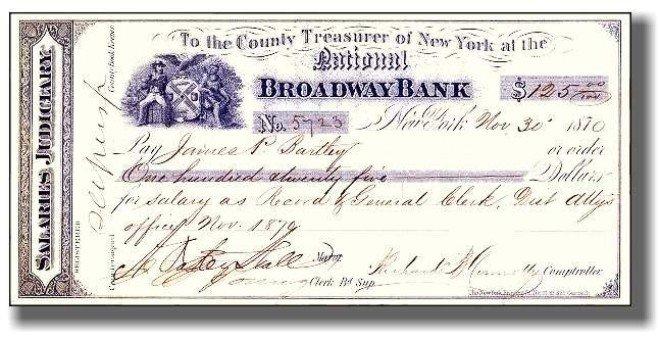 SALARIES JUDICIARY.
To the County Treasurer of New York at the
National
BROADWAY BANK
$125 00/100
No. 5723
New York Nov 30 1870
Pay James P. Bartley or order
One hundred & twenty five Dollars
for salary as Record & General Clerk, Dist Atty's
office Nov. 1870
A Oakey Hall Mayor
Clerk Bd Sup
Richard B Connolly Comptroller
Countersigned
REGISTERED